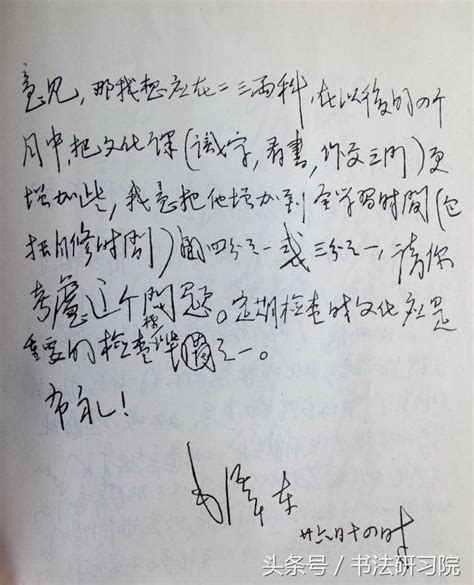 意見,那我想应在二三两科,在以後的四个
月中,把文化课(識字,看書,作文三門)更
增加些,我意把他增加到全学習时間(包
括自修时間)的四分之一或三分之一,请你
考慮这个問题。定期检查时文化应是
重要的检查標準之一。
布礼!
毛澤东
廿六日十四时
头条号/书法研习院